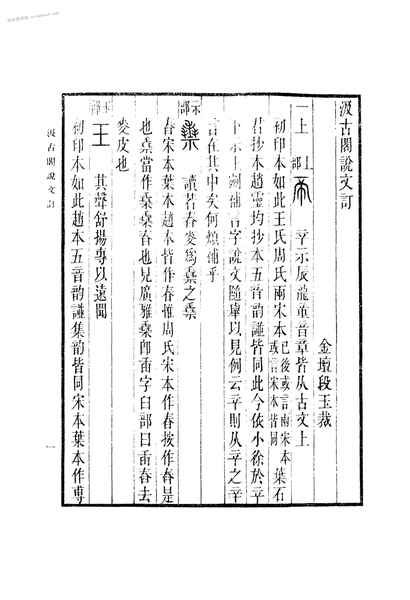 汲古閣說文訂
金壇段玉裁
一上
上部
帝
辛示辰龍童音章皆从古文上
初印本如此王氏周氏兩宋本已後或言兩宋本或言宋本皆同葉石
君抄本趙靈均抄本五音韵譜皆同此今依小徐於辛
下示上剜補言字說文隨舉以見例云辛則从辛之辛
言在其中矣何煩補乎
示部
讀若舂麥爲之
春宋本葉本趙本皆作春惟周氏宋本作舂按作舂是
也當作舂也見廣雅卽臿字臼部曰臿舂去
麥皮也
玉部
王
其聲舒揚專以遠聞
初印本如此趙本五音韵譜集韵皆同宋本葉本作尃
汲古閣說文訂
一